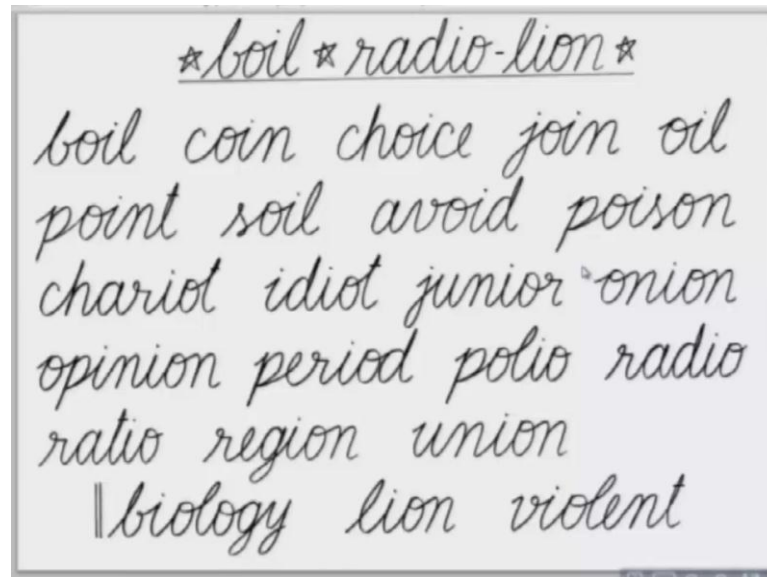 ☆boil☆radio-lion☆
boil coin choice join oil
point soil avoid poison
chariot idiot junior onion
opinion period polio radio
ratio region union
||biology lion violent